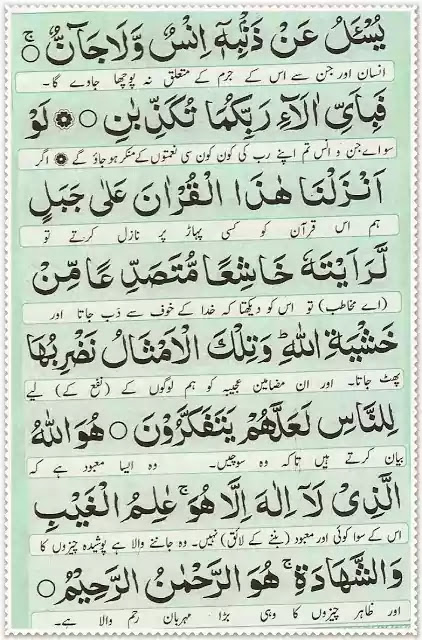 يُسْـَٔلُ عَنْ ذَنْۢبِهٖٓ اِنْسٌ وَّلَا جَآنٌّ ۚ ○
انسان اور جن سے اس کے جرم کے متعلق نہ پوچھا جاوے گا۔
فَبِاَىِّ اٰلَآءِ رَبِّكُمَا تُكَذِّبٰنِ ○ ۞ لَوْ
سو اے جن و انس تم اپنے رب کی کون کون سی نعمتوں کے منکر ہو جاؤ گے ۞ اگر
اَنْزَلْنَا هٰذَا الْقُرْاٰنَ عَلٰى جَبَلٍ
ہم اس قرآن کو کسی پہاڑ پر نازل کرتے تو
لَّرَاَيْتَهٗ خَاشِعًا مُّتَصَدِّعًا مِّنْ
(اے مخاطب) تو اس کو دیکھتا کہ خدا کے خوف سے دَب جاتا اور
خَشْيَةِ اللّٰهِ ؕ وَتِلْكَ الْاَمْثَالُ نَضْرِبُهَا
پھٹ جاتا۔ اور ان مضامین عجیبہ کو ہم لوگوں کے (نفع کے) لیے
لِلنَّاسِ لَعَلَّهُمْ يَتَفَكَّرُوْنَ ○ هُوَ اللّٰهُ
بیان کرتے ہیں تاکہ وہ سوچیں۔ وہ ایسا معبود ہے کہ
الَّذِىْ لَآ اِلٰهَ اِلَّا هُوَ ۚ عٰلِمُ الْغَيْبِ
اس کے سوا کوئی اور معبود (بننے کے لائق) نہیں۔ وہ جاننے والا ہے پوشیدہ چیزوں کا
وَالشَّهَادَةِ ۚ هُوَ الرَّحْمٰنُ الرَّحِيْمُ ○
اور ظاہر چیزوں کا وہی بڑا مہربان رحم والا ہے۔